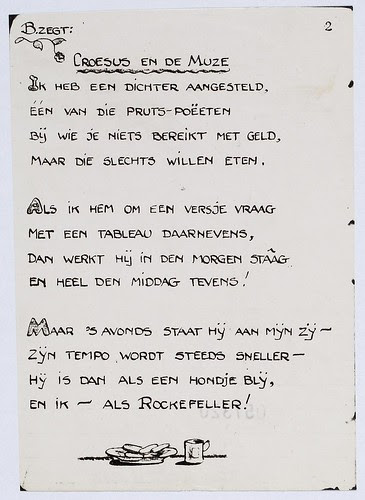 B.ZEGT:
2
CROESUS EN DE MUZE
IK HEB EEN DICHTER AANGESTELD,
ÉÉN VAN DIE PRUTS-POËETEN
BIJ WIE JE NIETS BEREIKT MET GELD,
MAAR DIE SLECHTS WILLEN ETEN.
ALS IK HEM OM EEN VERSJE VRAAG
MET EEN TABLEAU DAARNEVENS,
DAN WERKT HIJ IN DEN MORGEN STÂÂG
EN HEEL DEN MIDDAG TEVENS!
MAAR 'S AVONDS STAAT HIJ AAN MIJN ZIJ –
ZIJN TEMPO WORDT STEEDS SNELLER –
HIJ IS DAN ALS EEN HONDJE BLIJ,
EN IK – ALS ROCKEFELLER!